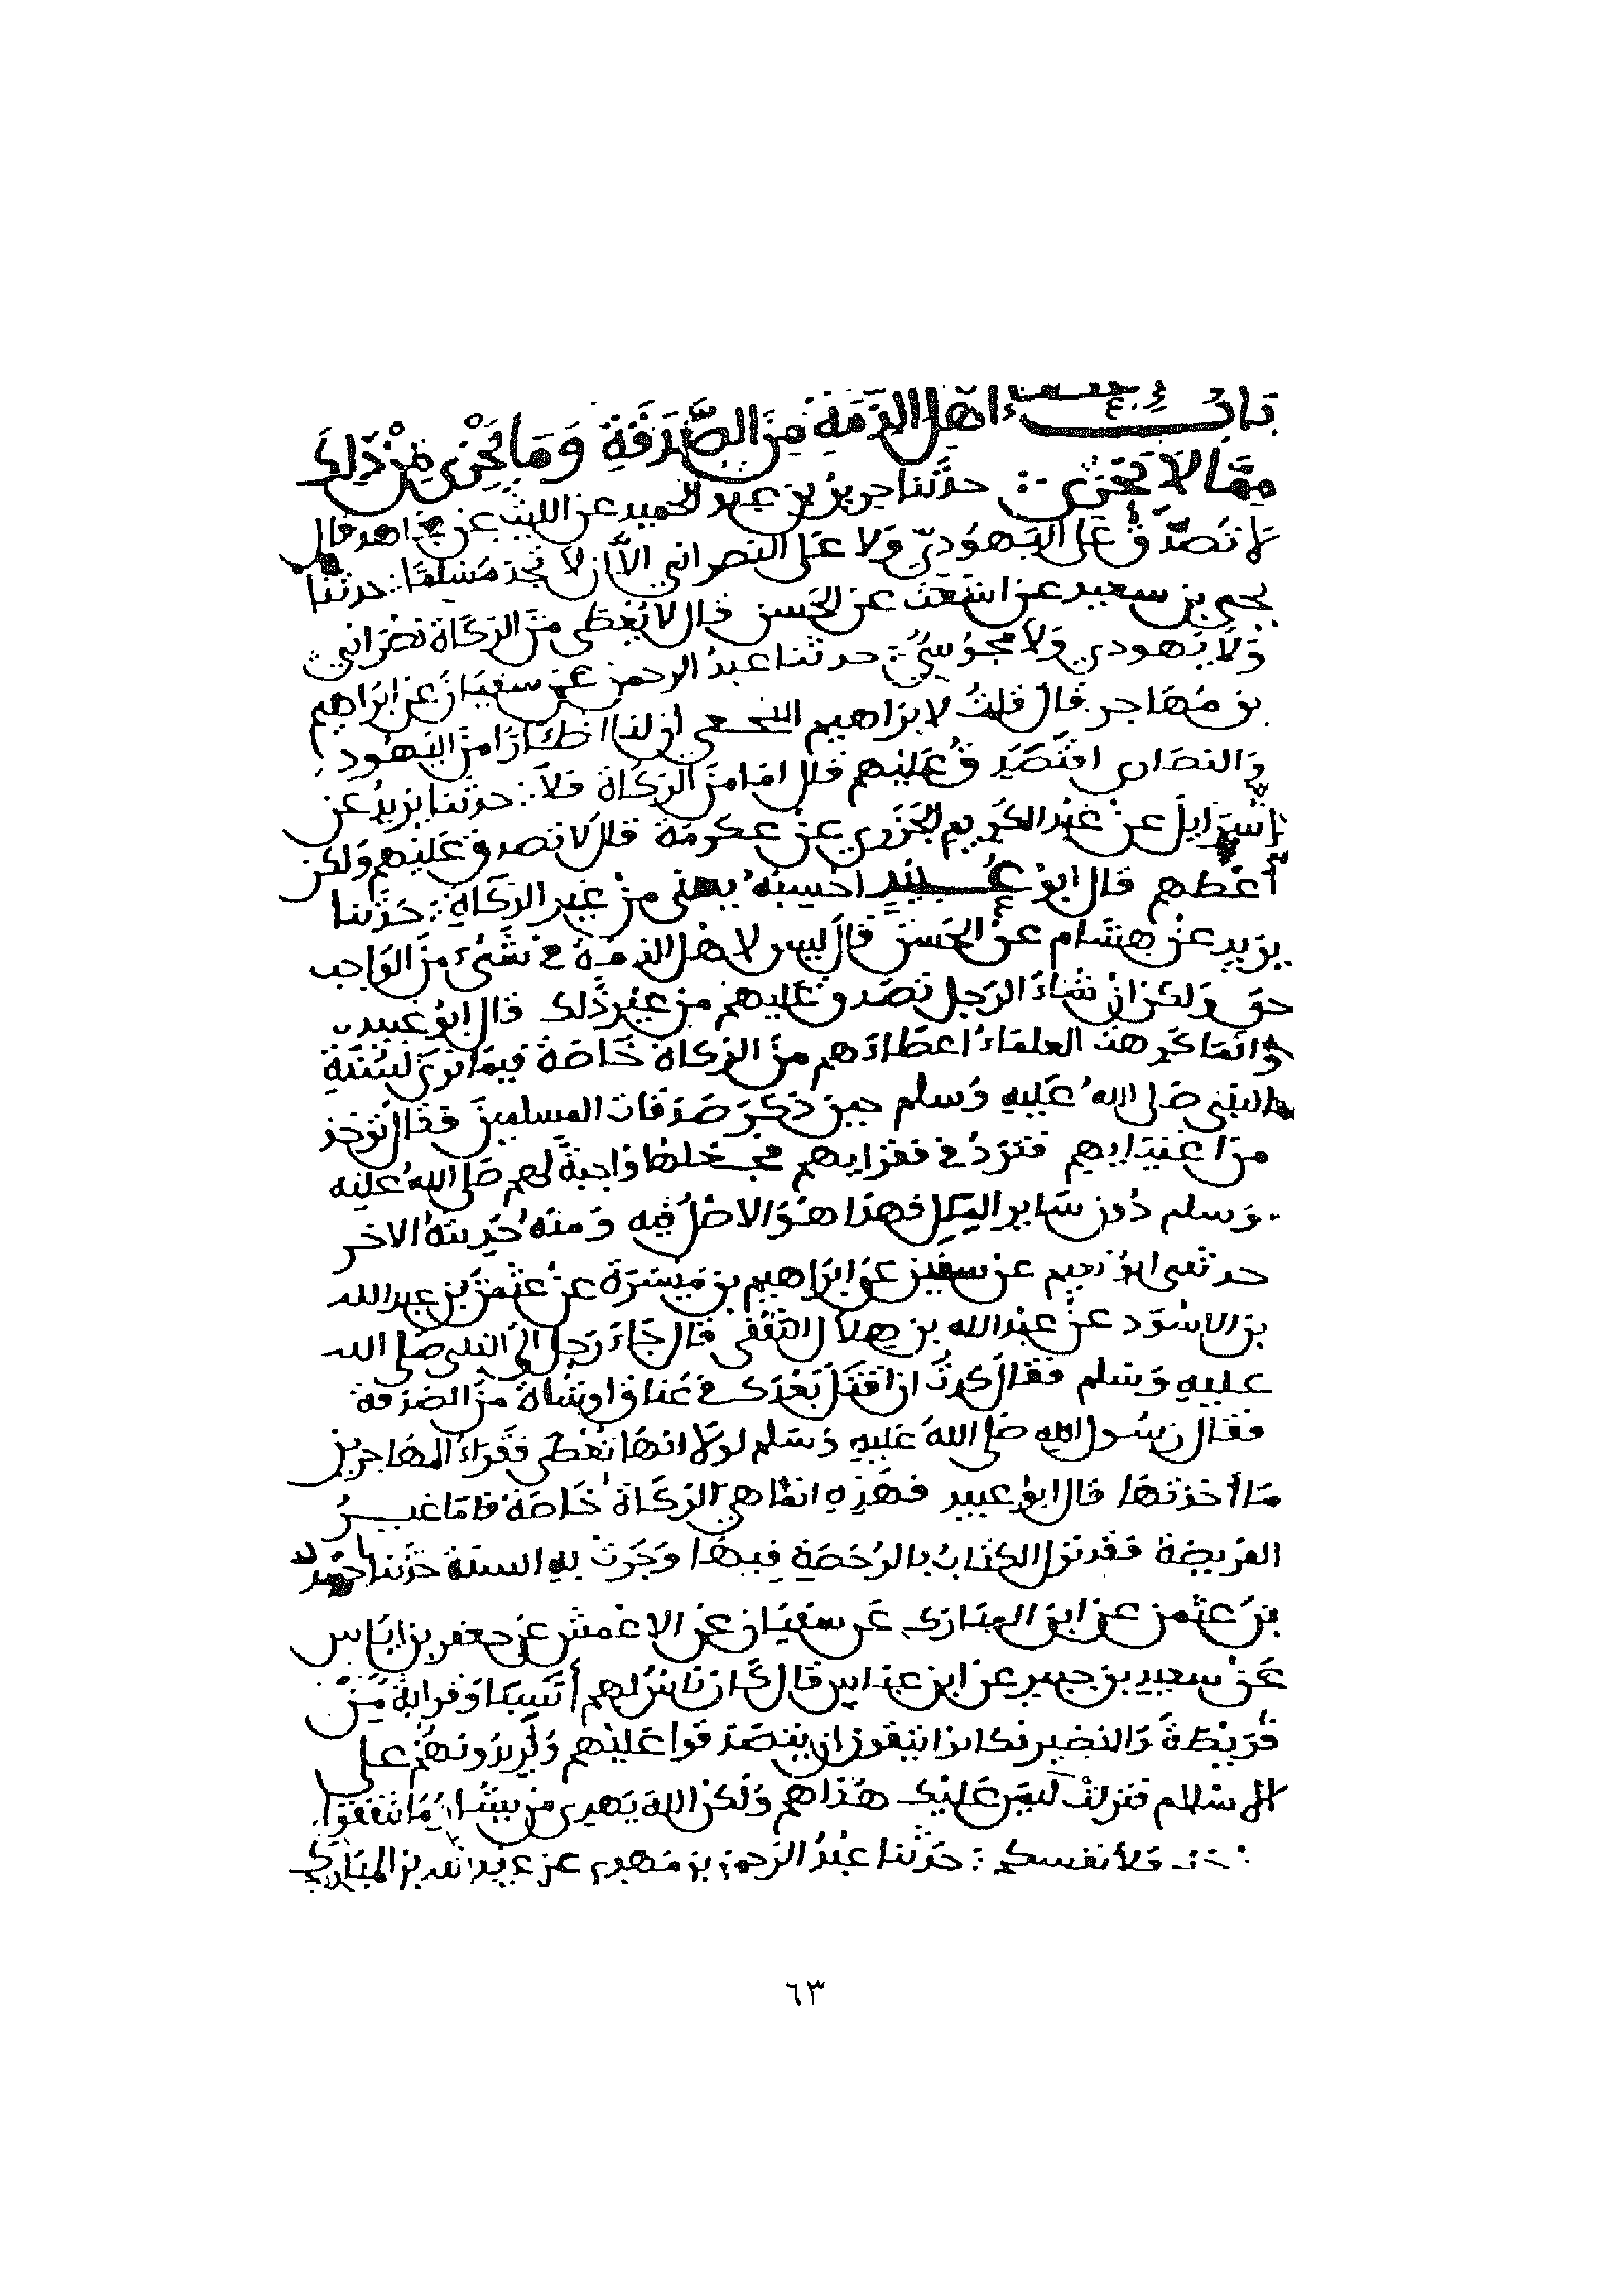 باب إعطاء أهل الذِّمَةِ مِنَ الصَّدَقَةِ وَمَا يُجْزِي مِنْ ذَلِكَ
مِمَّا لَا يُجْزِي حدَّثنا جرير بن عبد الحميد عن الليث عن مجاهد قال
لا تُصَدَّقْ على اليهُوديّ ولا على النصراني الّا ان لا تجد مسلمًا حدثنا
يحيى بن سعيد عن اشعَث عن الحَسن قال لا يُعْطى منَ الزكَاة نصْراني
وَلَا يَهودي ولا مجوُسيّ حدثنا عبدُ الرحمن عن سفيَان عن ابرَاهيم
بن مُهَاجر قال قلتُ لابرَاهيم النخعي ان لنا اظآرًا منَ اليَهُود
وَالنصَارى افنَصَدق عَليْهم قال اما منَ الزكَاة فلاَ حدثنا يزيدُ عن
اسْرَايلَ عنْ عَبْد الكَريم الجَزَري عنْ عكرمَة قالَ لا تصدق عَليْهم وَلكن
أعْطهم قال ابوُ عُبيْدٍ احْسِبُهُ يعنى منْ غيرِ الزكَاةِ حَدَّثنا
يزيد عنْ هِشَام عن الحَسَن قال ليس لاهْل الذمة في شَّيْء منَ الوَاجب
حق وَلكن انْ شَاءَ الرَجل تصَدق عَليهمْ من غيْر ذَلك قال ابوُ عُبيد
وَانمَا كَره هذه العلمَاءُ اعطَاءَهم منَ الزكاة خَاصَة فيمَا نرَى لسُنَّةِ
النبي صَلى اللهُ عَليهِ وَسلم حينَ ذكَر صَدَقات المسلمينَ فقال تؤخذ
منَ اغنيَايهم فترَدُّ في فقرَايهم فجعلهَا وَاجبةً لهم صَلى اللهُ عليْه
وَسلم دُون سَاير الملل فهذا هُوَ الاصْلُ فيه وَمنهُ حَديثهُ الاخر
حدثنى ابوُ نعيم عن سفين عن ابرَاهيم بن مَيْسَرَة عن عثمنَ بن عبد الله
بن الاسْوَد عنْ عبْد الله بن هِلال الثقفى قال جَاءَ رَجل الى النبى صَلى الله
عليهِ وَسَلم فقالَ كدتُ ان اقتَلَ بَعْدَك في عَناق او شَاة منَ الصَدقة
فقال رسُول اللهِ صَلى اللهُ عَليهِ وَسَلم لوْلا انهَا تُعْطى فقَرَاءَ المهَاجرين
مَا أخذتهَا قال ابوُ عبيد فهَذِهِ انمَا هيَ الزكَاة خَاصَة فامَا غيرُ
الفريضة فقد نزل الكتابُ بالرُخصَةِ فيهَا وَجَرَتْ بهِ السنة حدَّثنا احمَد
بنُ عثمن عن ابن المبَارَك عَن سفيَان عن الاعْمش عن جعفر بن ايَاس
عَنْ سعيد بن جبير عن ابن عبَاس قال كَانَ نَاسٌ لهم أنسِبَاءُ وقرابة مِنْ
قُرَيْظةَ وَالنضير فكانوا يتقون ان يتصَدقوا عَليْهم وَيُريدُونهُمْ على
الاسْلام فنزلت ليسَ عَليْك هُدَاهم وَلكن اللهَ يَهدى من يشاءُ وَمَا تنفقوا
فلأنفسكم حدَّثنا عبْدُ الرَحمن بن مَهدى عن عبْد الله بن المبَارك
٦٣